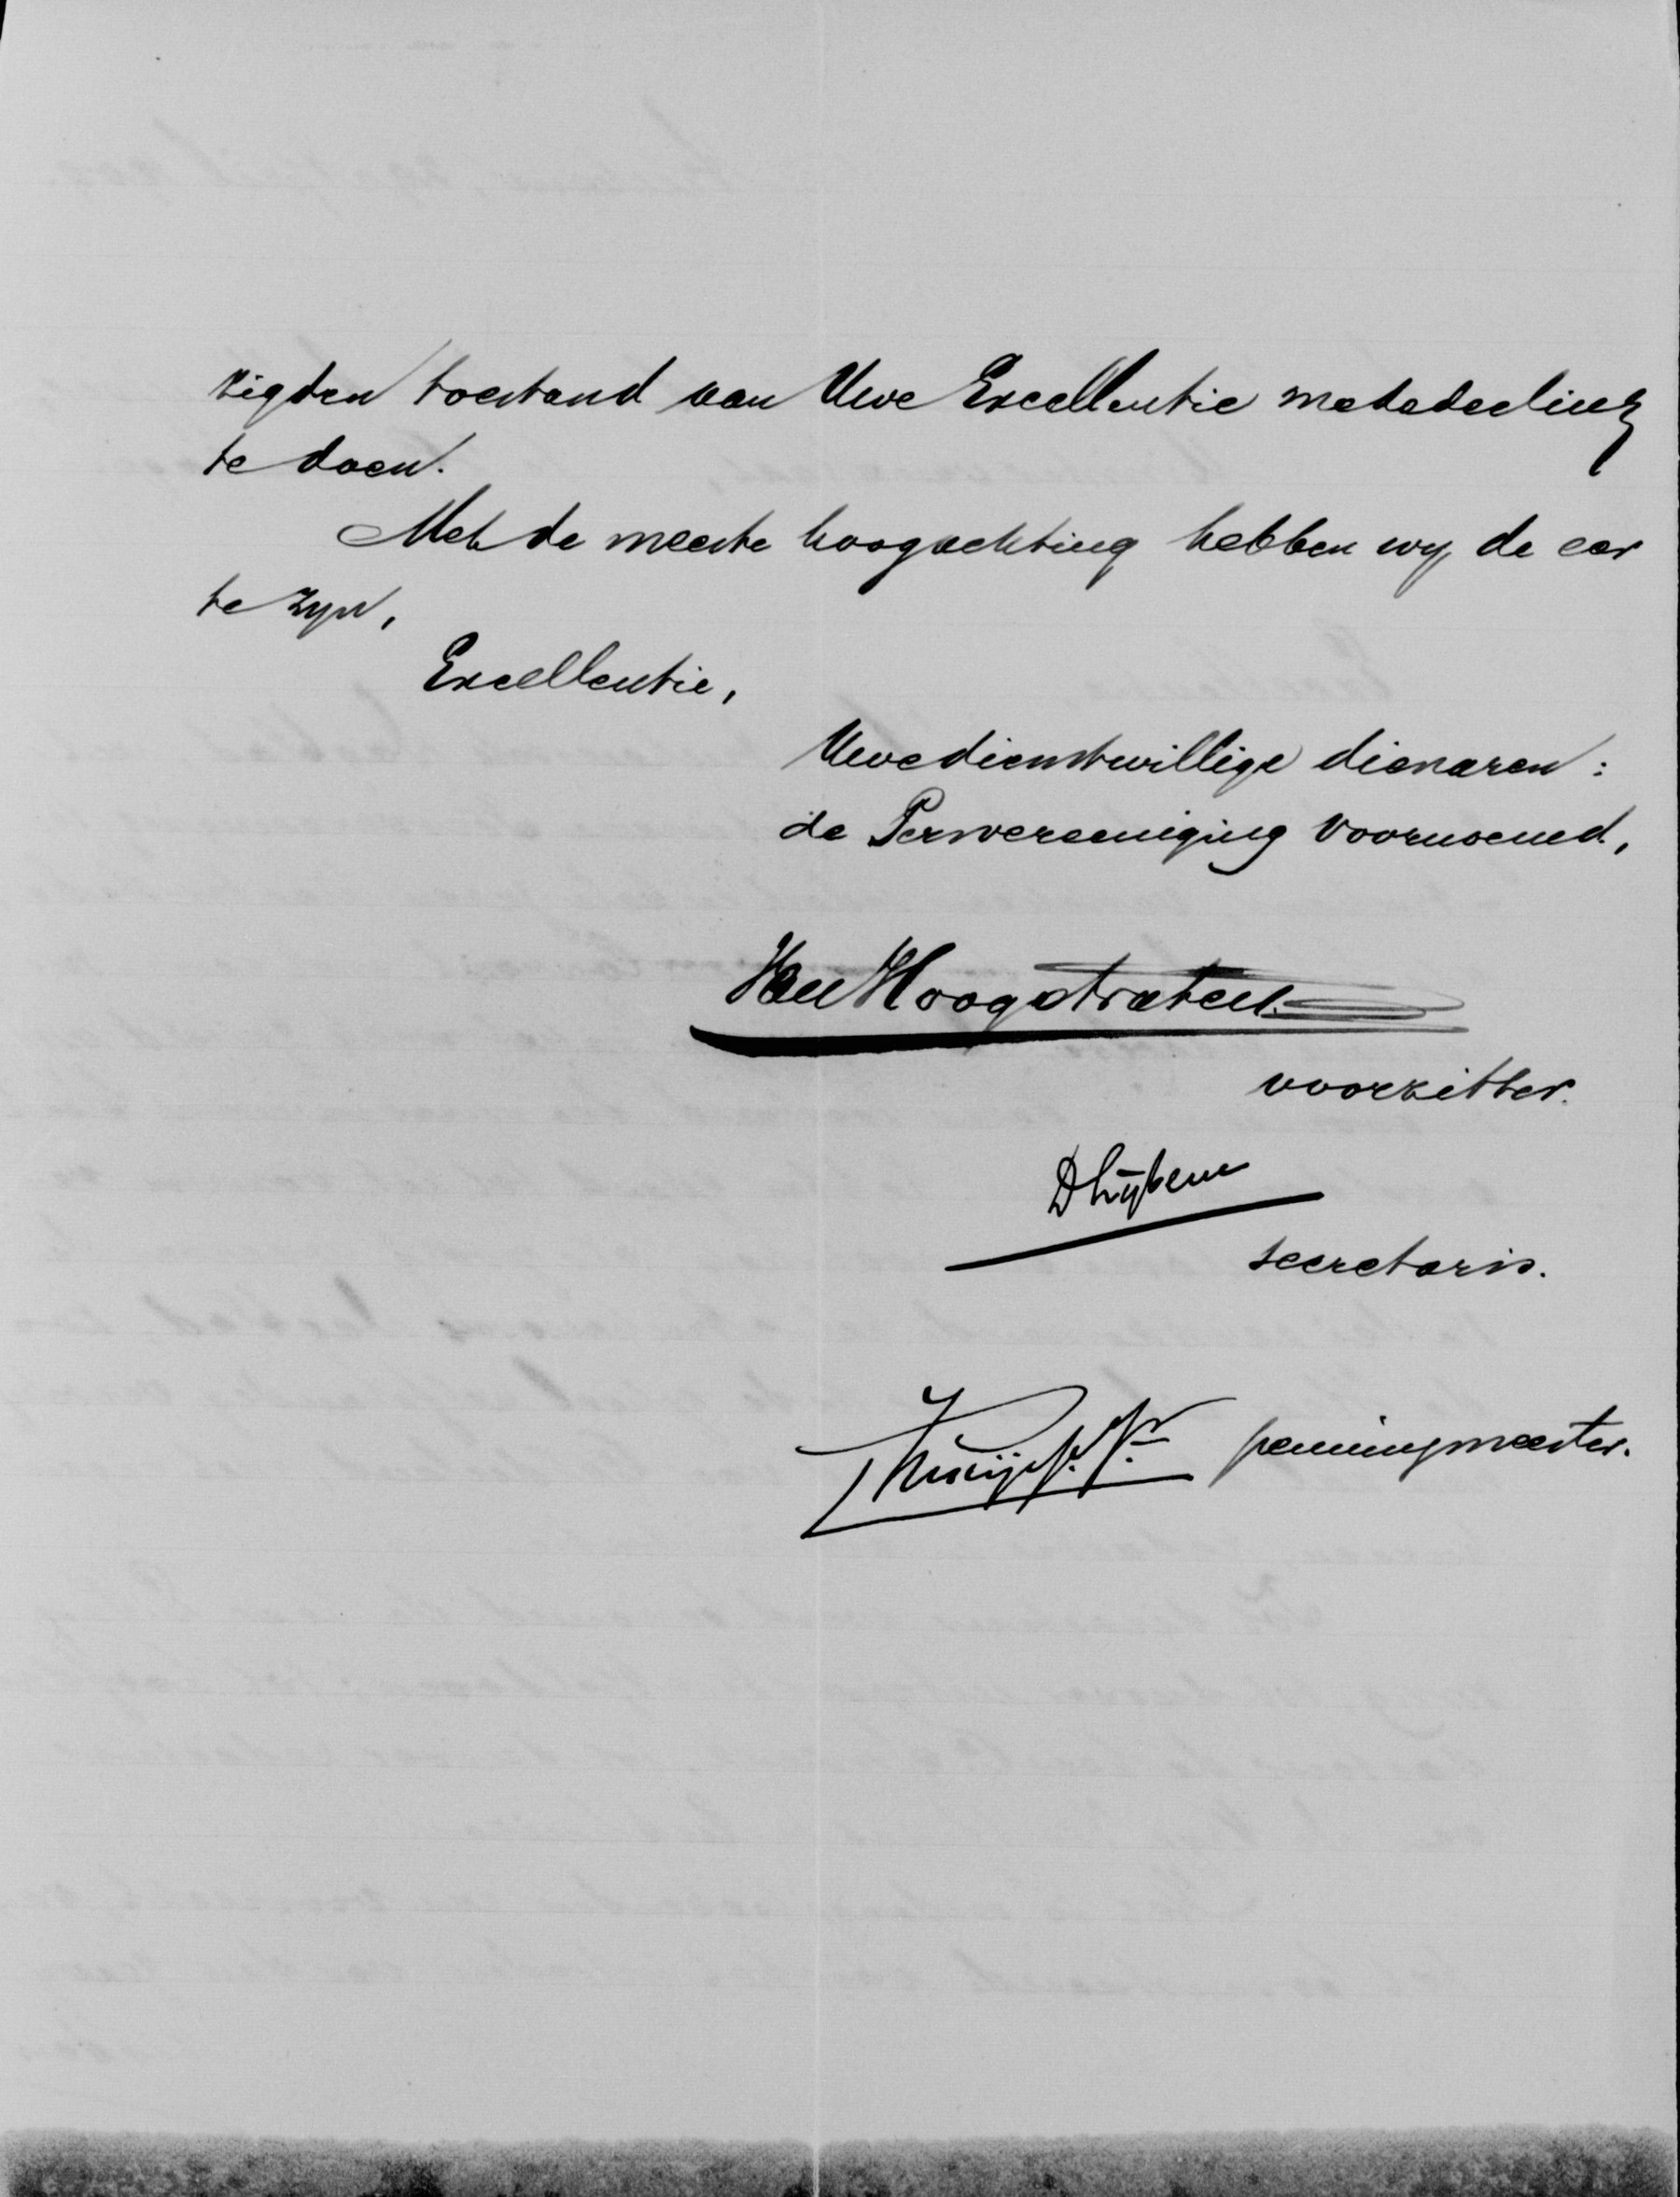 zigden toestand aan Uwe Excellentie mededeeling
te doen.
Met de meeste hoogachting hebben wy de eer
te zyn,
Excellentie,
Uwe dienstwillige dienaren:
de Persvereeniging voornoemd,
Van Hoogstraten.
voorzitter.
secretaris.
penningmeester.